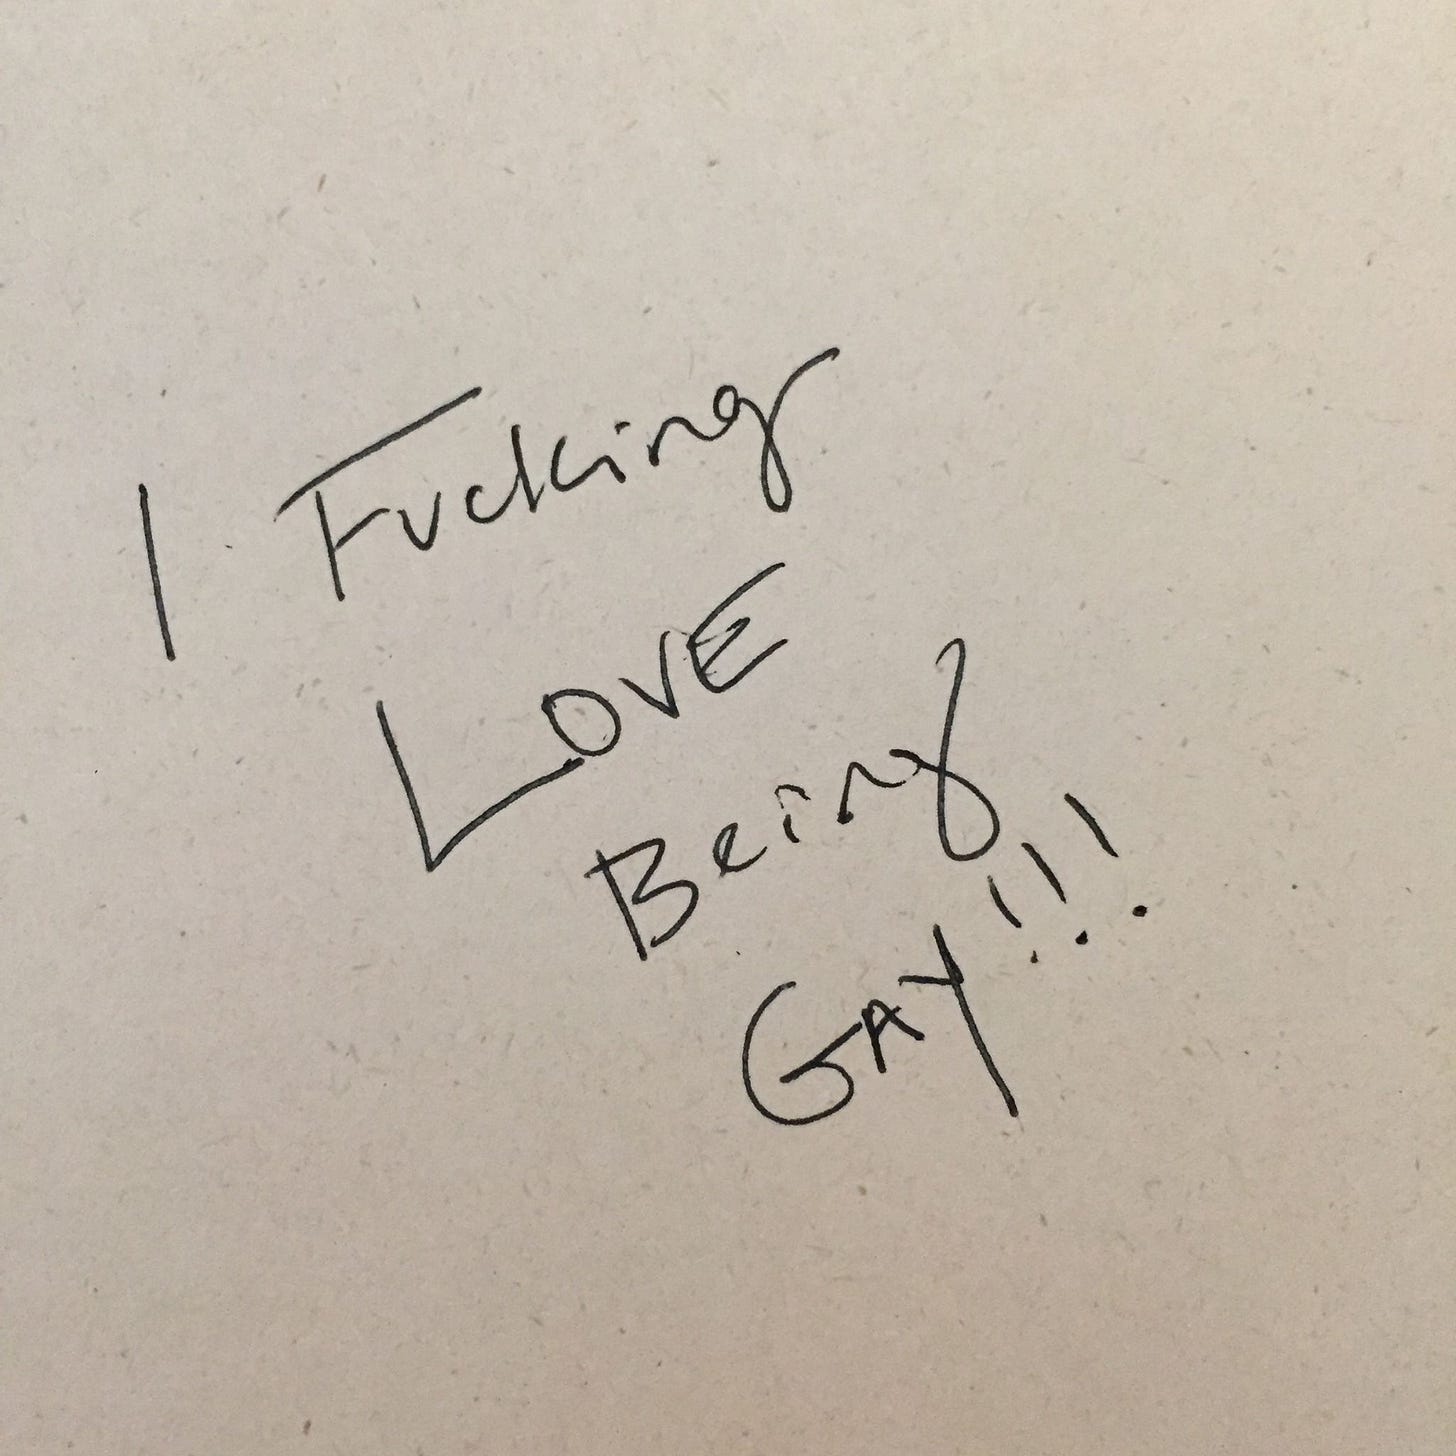 I Fucking
LOVE
Being
GAY!!!